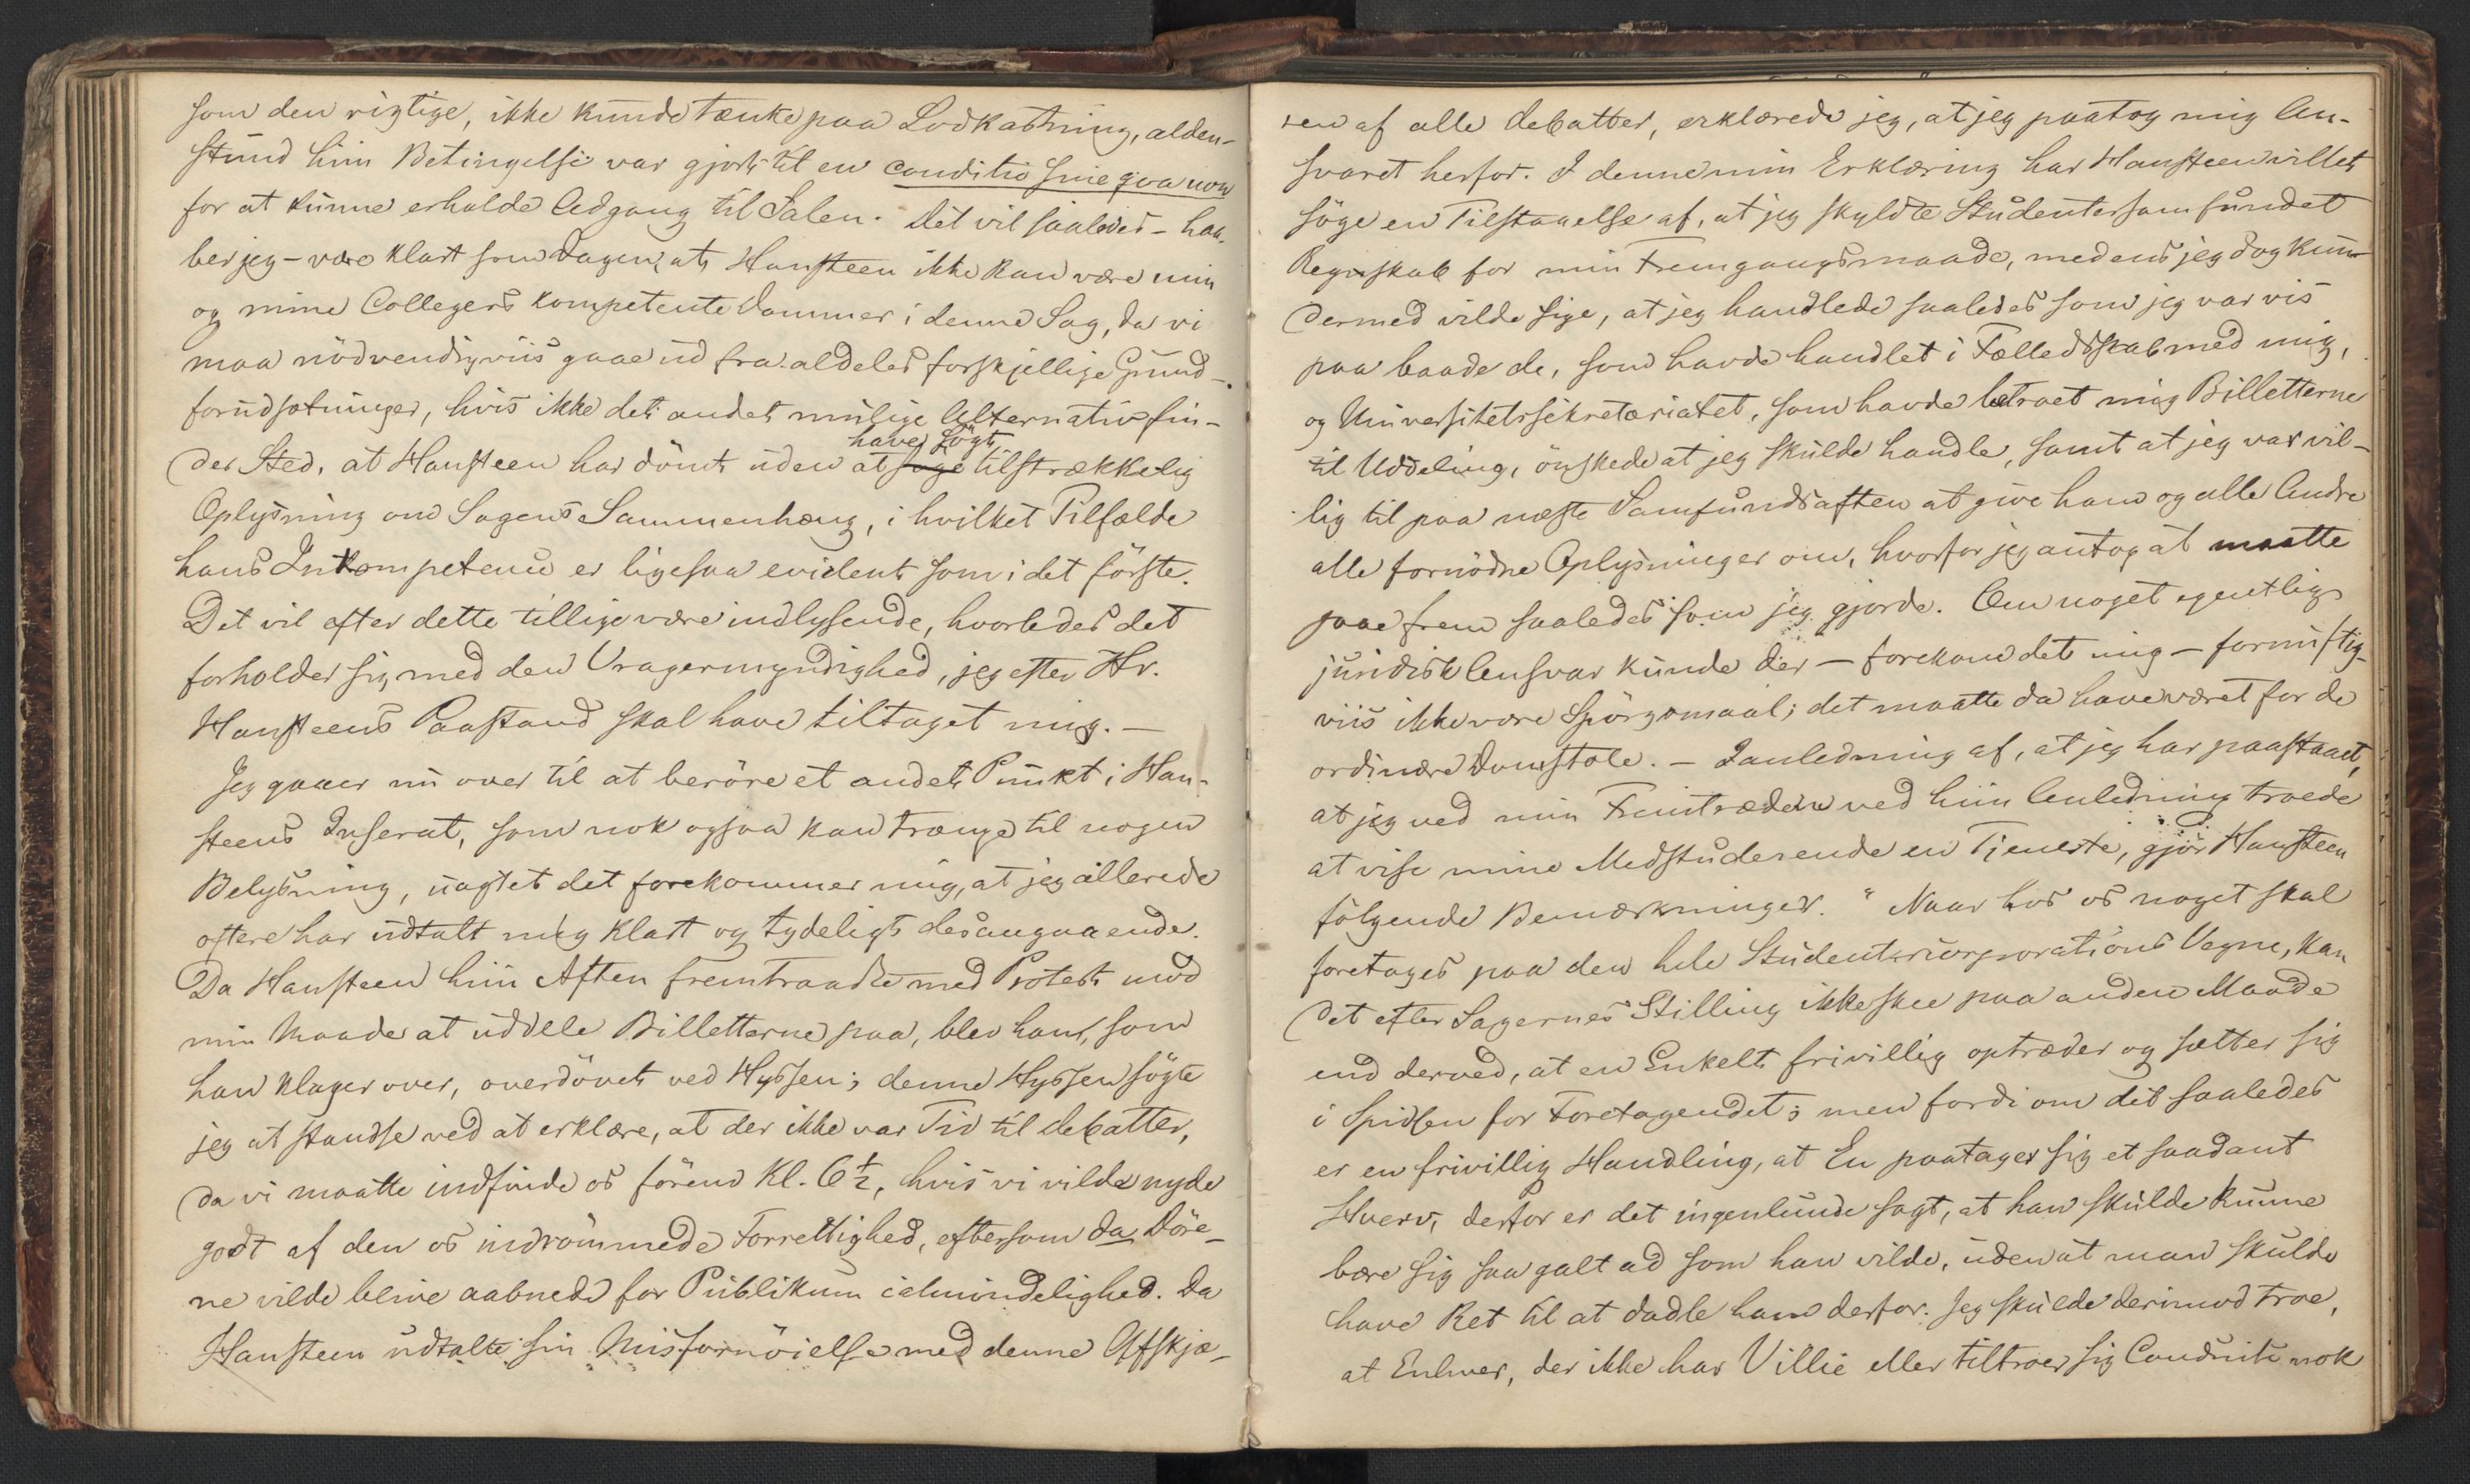 som den rigtige, ikke kunde tænke paa Lodkastning, alden-
stund hiin Betingelse var gjort til en conditio sine qva non
for at kunne erholde Adgang til Salen. Det vil saaledes – haa-
ber jeg – være klart som Dagen, at Hansteen ikke kan være min
og mine Collegers kompetente Dommer i denne Sag, da vi
maa nödvendigviis gaae ud fra aldeles forskjellige Grund-
forudsætninger, hvis ikke det andet mulige Alternativ fin-
der Sted, at Hansteen har dömt uden at söge have sögt tilstrækkelig
Oplysning om Sagens Sammenhæng, i hvilket Tilfælde
hans Inkompetence er ligesaa evident som i det förste.
Det vil efter dette tillige være indlysende, hvorledes det
forholder sig med den Vragermyndighed, jeg efter Hr.
Hansteens Paastand skal have tiltaget mig. –
Jeg gaaer nu over til at beröre et andet Punkt i Han-
steens Inserat, som nok ogsaa kan trænge til nogen
Belysning, uagtet det forekommer mig, at jeg allerede
oftere har udtalt mig klart og tydeligt desangaaende.
Da Hansteen hiin Aften fremtraadte med Protest mod
min Maade at uddele Billetterne paa, blev han, som
han klager over, overdövet ved Hyssen; denne Hyssen sögte
jeg at standse ved at erklære, at der ikke var Tid til debatter,
da vi maatte indfinde os förend Kl. 6½, hvis vi vilde nyde
godt af den os indrömmede Forrettighed, eftersom da Döre-
ne vilde blive aabnede for Publikum i almindelighed. Da
Hansteen udtalte sin Misfornöielse med denne Afskjæ-
ren af alle debatter, erklærede jeg, at jeg paatog mig An-
svaret herfor. I denne min Erklæring har Hansteen villet
söge en Tilstaaelse af, at jeg skyldte Studentersamfundet
Regnskab for min Fremgangsmaade, medens jeg dog kun
dermed vilde sige, at jeg handlede saaledes som jeg var vis
paa baade de, som havde handlet i Fælledskab med mig,
og Universitetssekretariatet, som havde betroet mig Billetterne
til Uddeling, önskede at jeg skulde handle, samt at jeg var vil-
lig til paa næste Samfundsaften at give ham og alle Andre
alle fornödne Oplysninger om, hvorfor jeg antog at maatte
gaae frem saaledes som jeg gjorde. Om noget egentligt
juridisk Ansvar kunde der – forekom det mig – fornuftig-
viis ikke være Spörgsmaal; det maatte da have været for de
ordinære Domstole. – I anledning af, at jeg har paastaaet,
at jeg ved min Fremtræden ved hiin Anledning troede
at vise mine Medstuderende en Tjeneste, gjör Hansteen
fölgende Bemærkninger. "Naar hos os noget skal
foretages paa den hele Studentercorporations Vegne, kan
det efter Sagernes Stilling ikke skee paa anden Maade
end derved, at en Enkelt frivillig optræder og sætter sig
i Spidsen for Foretagendet; men fordi om det saaledes
er en frivillig Handling, at En paatager sig et saadant
Hverv, derfor er det ingenlunde sagt, at han skulde kunne
bære sig saa galt ad som han vilde, uden at man skulde
have Ret til at dadle ham derfor. Jeg skulde derimod troe,
at Enhver, der ikke har Villie eller tiltroer sig Conduite nok